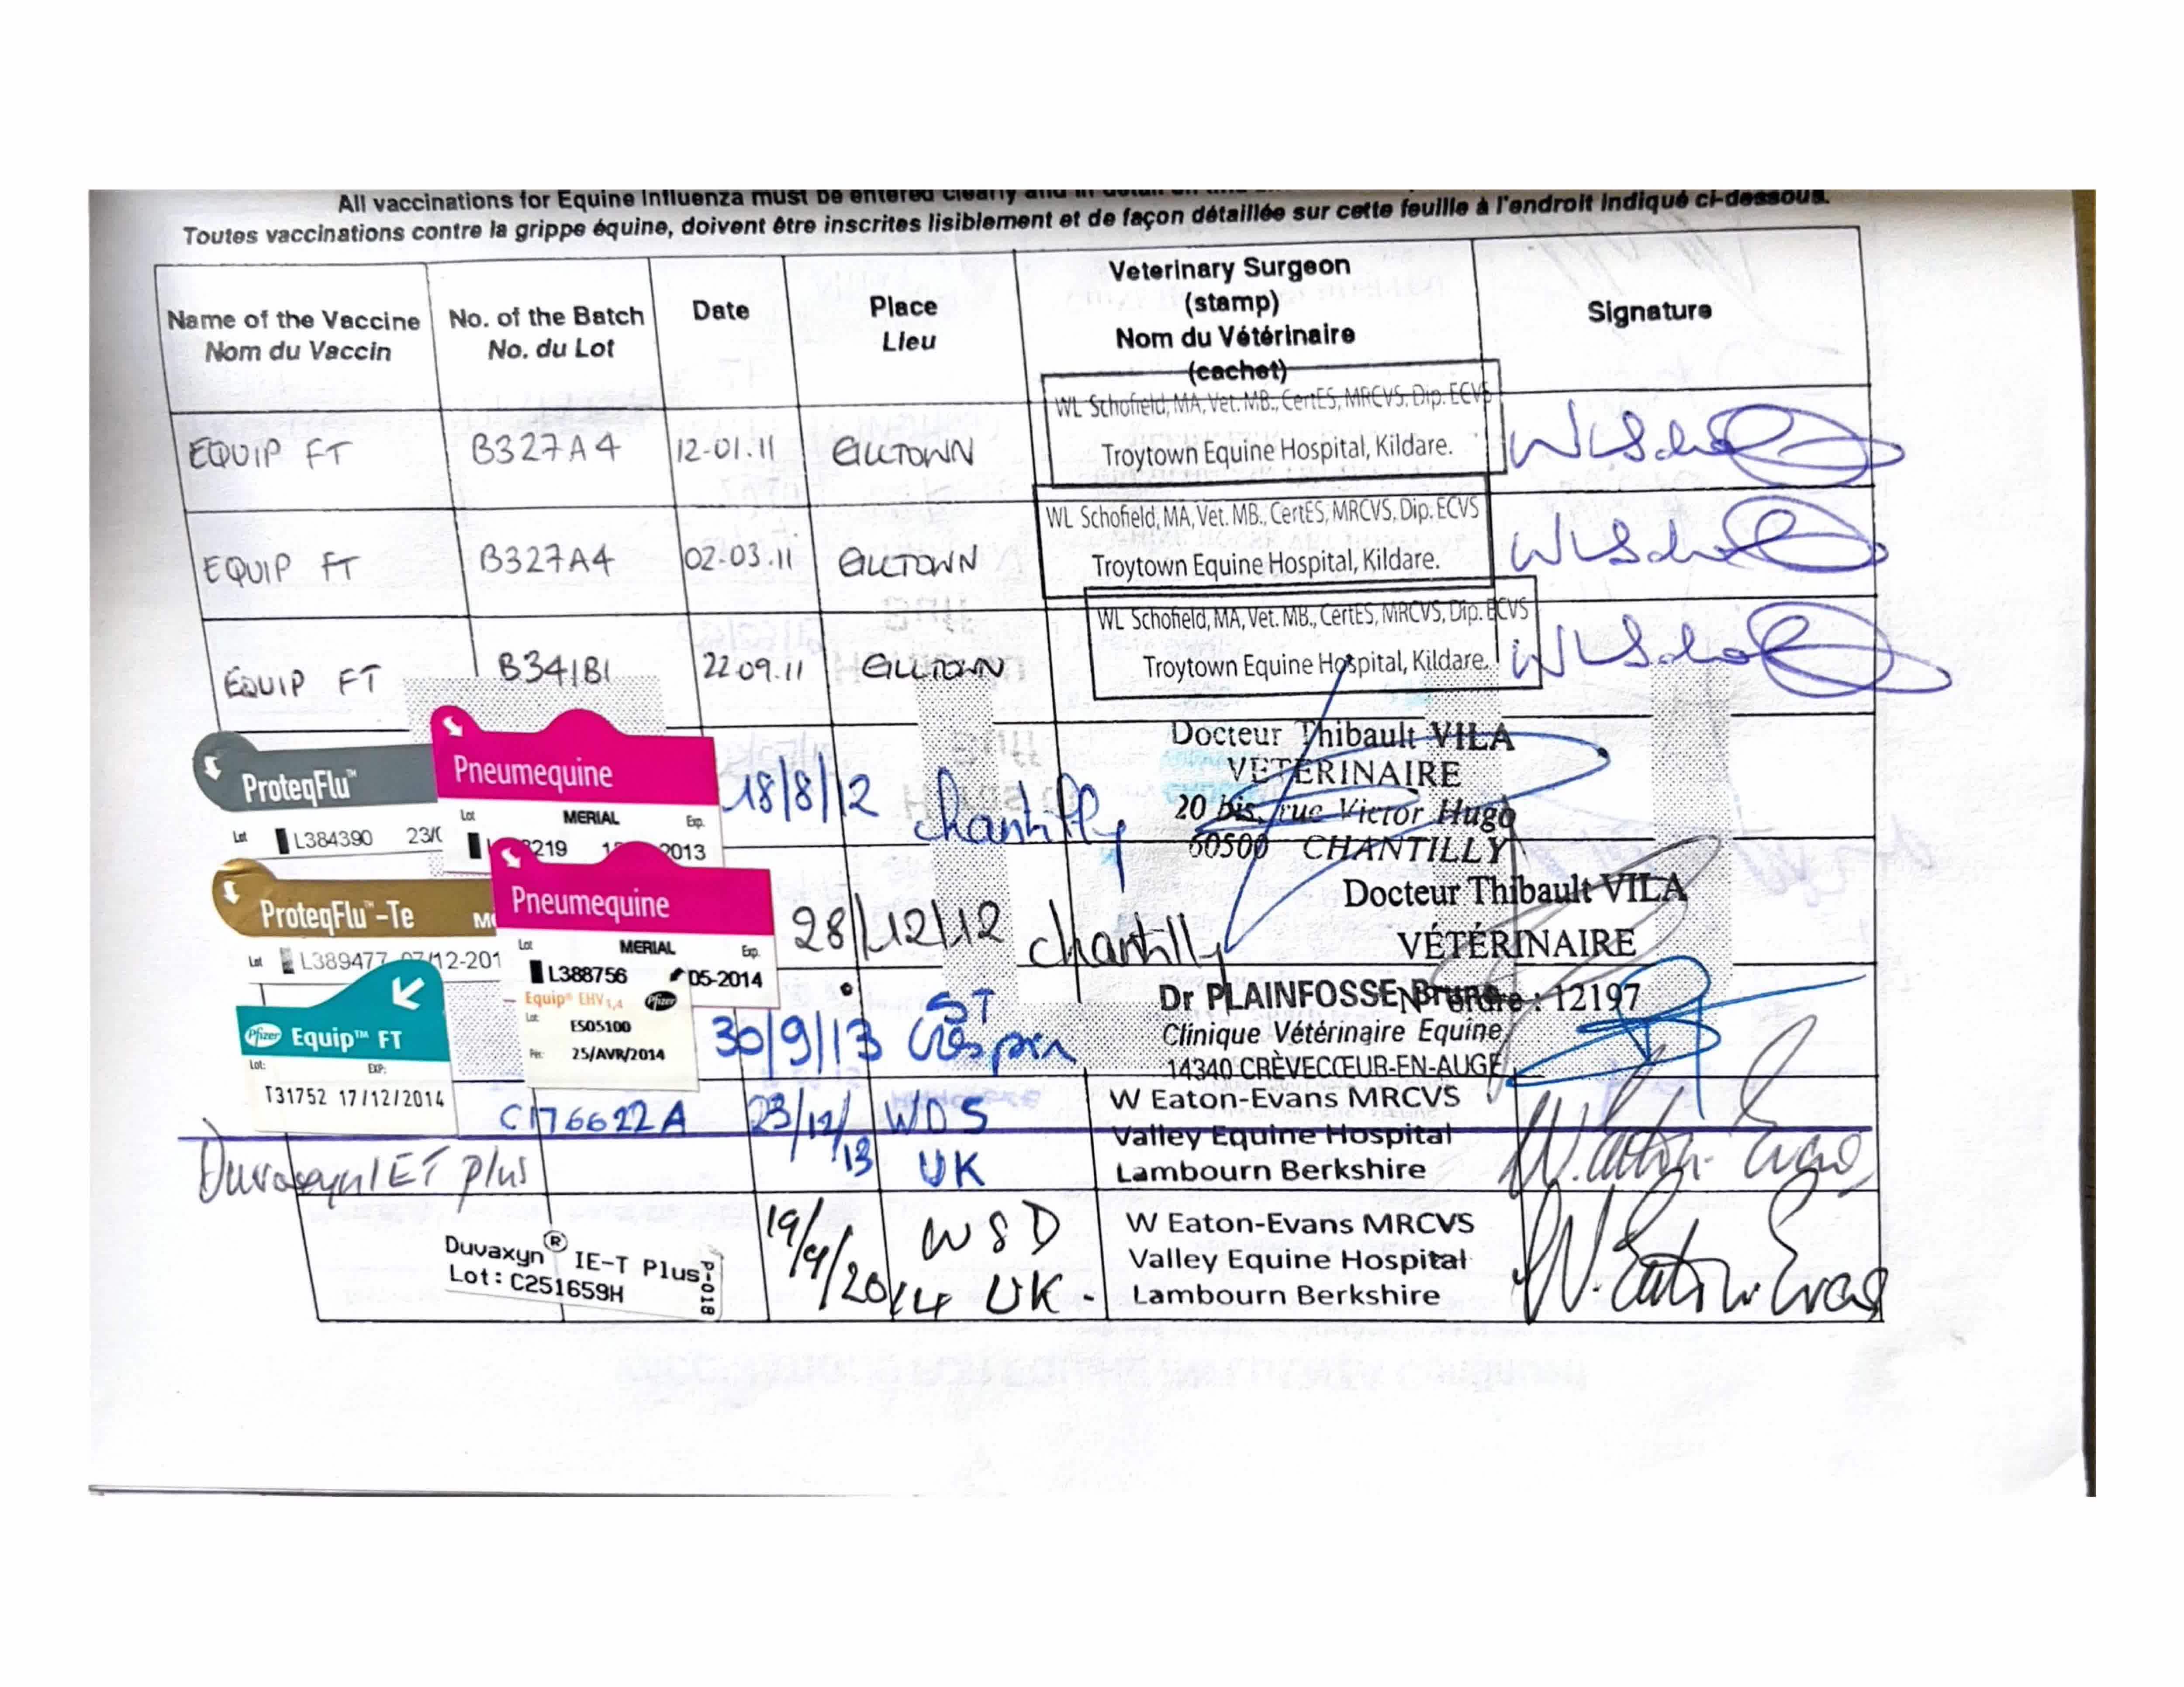 All vaccinations for Equine Influenza must be entered clearly and in detail on
Toutes vaccinations contre la grippe équine, doivent être inscrites lisiblement et de façon détaillée sur cette feuille à l'endroit indiqué ci-dessous.
Name of the Vaccine
Nom du Vaccin
No. of the Batch
No. du Lot
Date
Place
Lieu
Veterinary Surgeon
(stamp)
Nom du Vétérinaire
(cachet)
Signature
EQUIP FT B327A4 12-01.11 GILLTOWN
WL Schofield, MA, Vet. MB., CertES, MRCVS, Dip. ECVS
Troytown Equine Hospital, Kildare.
EQUIP FT B327A4 02-03.11 GILLTOWN
WL Schofield, MA, Vet. MB., CertES, MRCVS, Dip. ECVS
Troytown Equine Hospital, Kildare.
EQUIP FT B341B1 22 09.11 GILLTOWN
WL Schofield, MA, Vet. MB., CertES, MRCVS, Dip. ECVS
Troytown Equine Hospital, Kildare.
ProteqFlu™
Lot L384390
Pneumequine
Lot MERIAL Exp.
219 2013
18/8/12 Chantilly
Docteur Thibault VILA
VETERINAIRE
20 bis, rue Victor Hugo
60500 CHANTILLY
ProteqFlu™-Te
Lot L389477 07/12-201
Pneumequine
Lot MERIAL Exp.
L388756 05-2014
28/12/12 Chantilly
Docteur Thibault VILA
VÉTÉRINAIRE
N° ordre : 12197
Pfizer Equip™ FT
Lot: EXP:
T31752 17/12/2014
Equip® EHV1,4 Pfizer
Lot: ES05100
Per: 25/AVR/2014
30/9/13 ST Crespin
Dr PLAINFOSSE Bruno
Clinique Vétérinaire Equine
14340 CRÈVECŒUR-EN-AUGE
Duvaxyn IET plus
C176622A 23/12/13 WDS
UK
W Eaton-Evans MRCVS
Valley Equine Hospital
Lambourn Berkshire
W. Eaton-Evans
Duvaxyn® IE-T Plus
Lot: C251659H
P-018
WSD
UK -
W Eaton-Evans MRCVS
Valley Equine Hospital
Lambourn Berkshire
W. Eaton-Evans